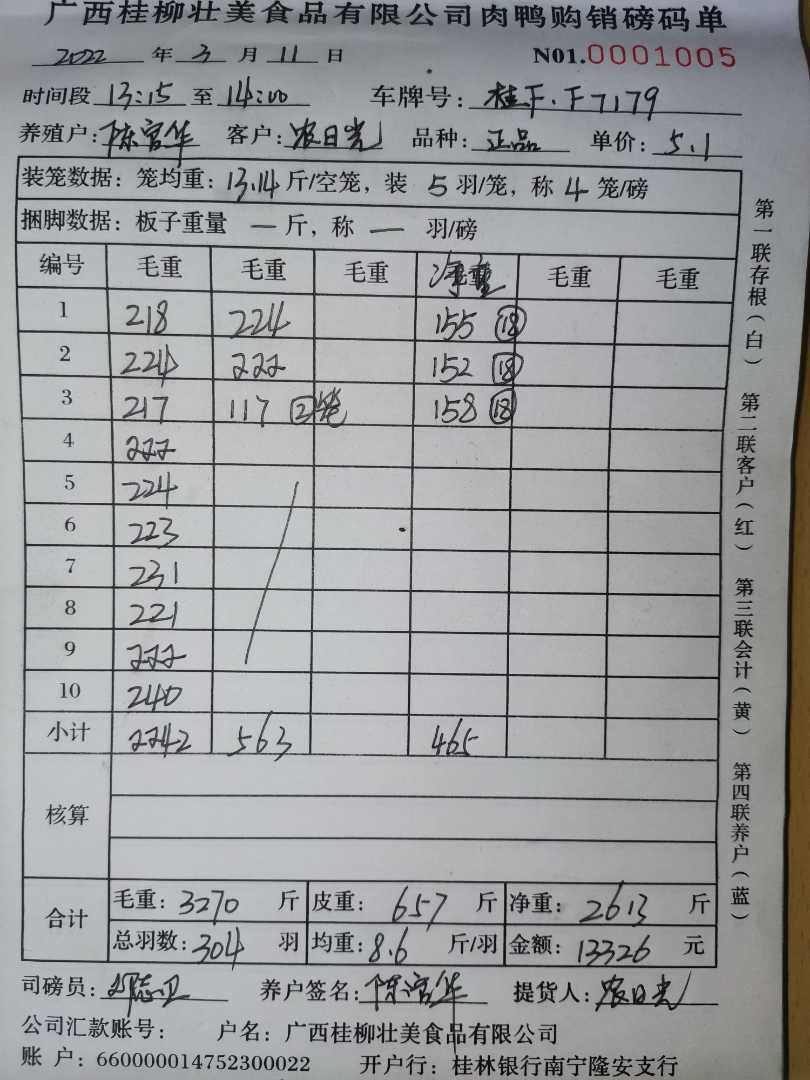 广西桂柳壮美食品有限公司肉鸭购销磅码单
2022 年 3 月 11 日 N01.0001005
时间段 13:15 至 14:00 车牌号: 桂F·F7179
养殖户: 陈富华 客户: 农日光 品种: 正品 单价: 5.1
装笼数据: 笼均重: 13.14 斤/空笼, 装 5 羽/笼, 称 4 笼/磅
捆脚数据: 板子重量 一 斤, 称 一 羽/磅
编号 毛重 毛重 毛重 净重 毛重 毛重
1 218 224 155 ⑱
2 224 222 152 ⑱
3 217 117 ②笼 158 ⑱
4 222
5 224
6 223
7 231
8 221
9 222
10 240
小计 2242 563 465
核算
合计 毛重: 3270 斤 皮重: 657 斤 净重: 2613 斤
总羽数: 304 羽 均重: 8.6 斤/羽 金额: 13326 元
司磅员: 养户签名: 陈富华 提货人: 农日光
公司汇款账号: 户名: 广西桂柳壮美食品有限公司
账 户: 660000014752300022 开户行: 桂林银行南宁隆安支行
第一联存根(白) 第二联客户(红) 第三联会计(黄) 第四联养户(蓝)